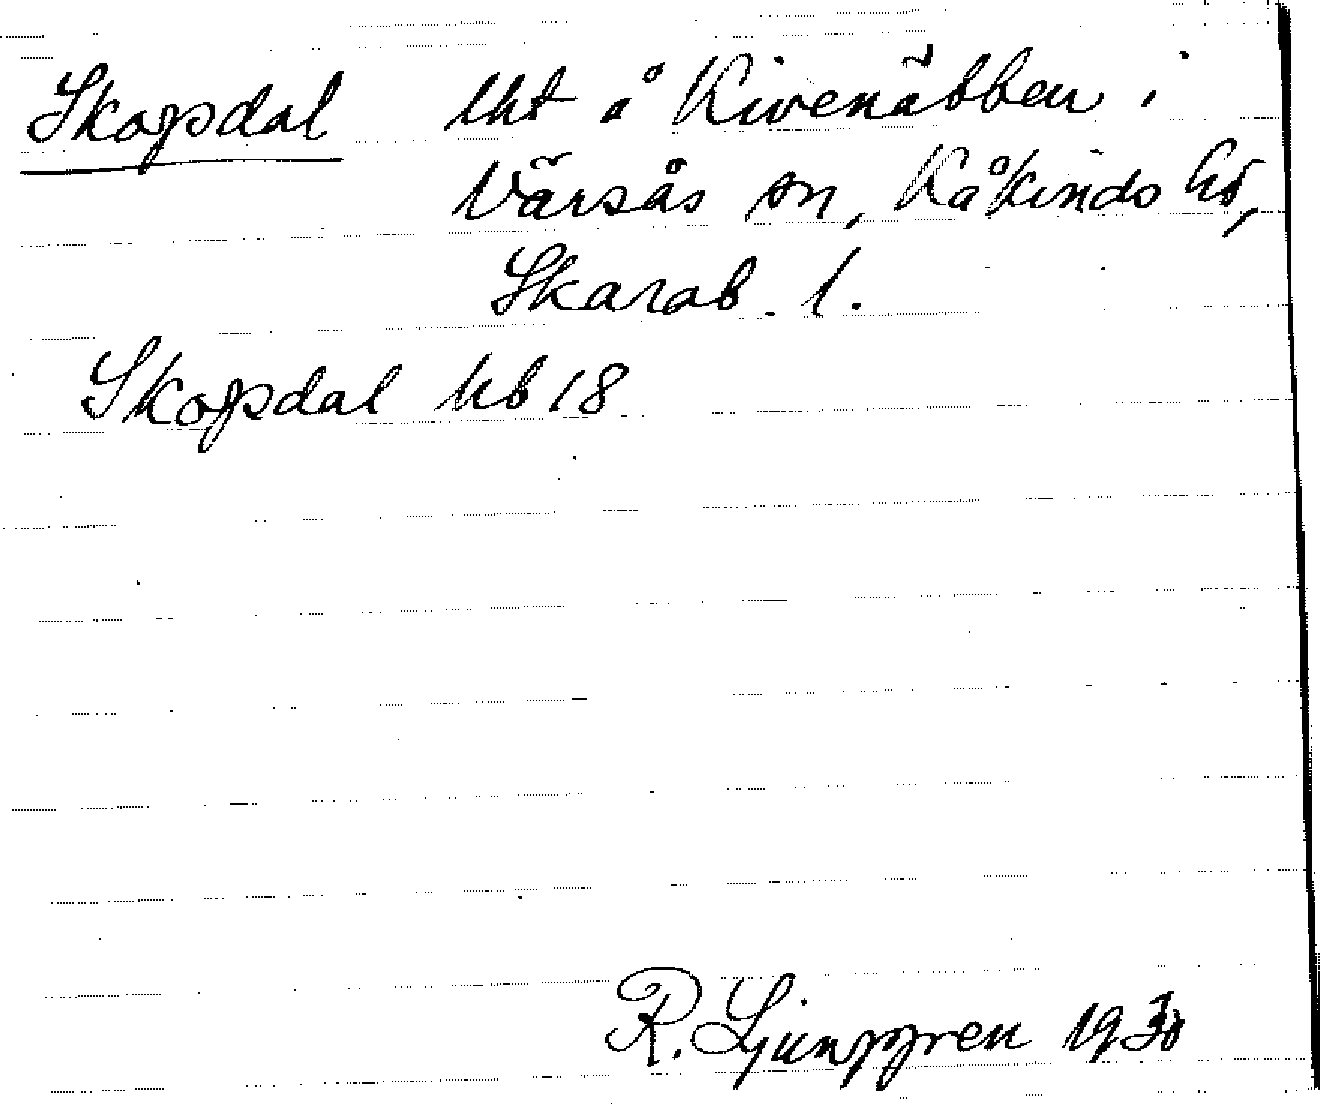 Skogsdal lht å Kivenäbben i
Värsås sn, Kåkinds hd,
Skarab. l.
Skogsdal hb 18
R. Ljunggren